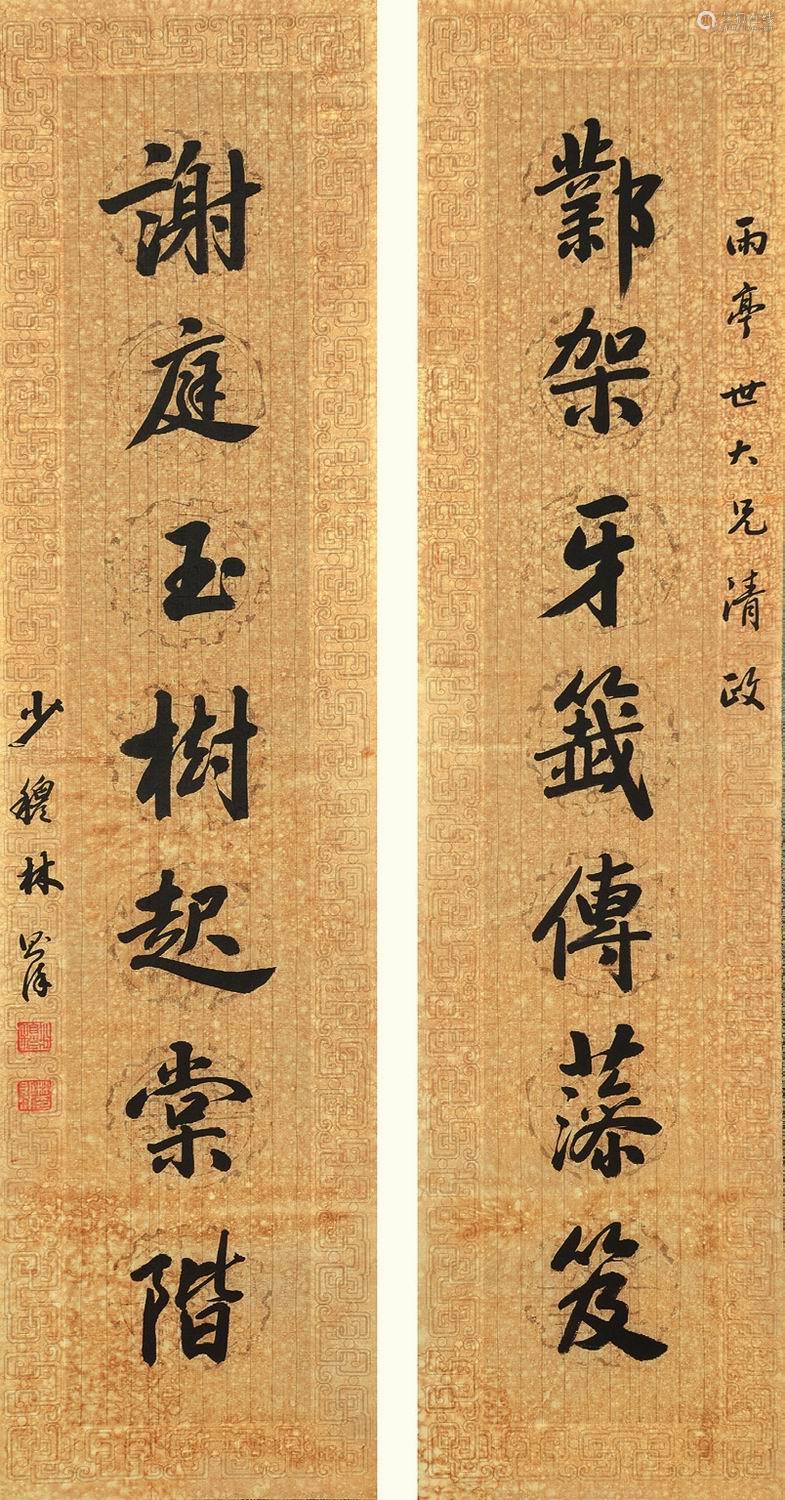 雨亭世大兄清政
鄴架牙籤傳蕣笈
謝庭玉樹起棠階
少穆林則徐